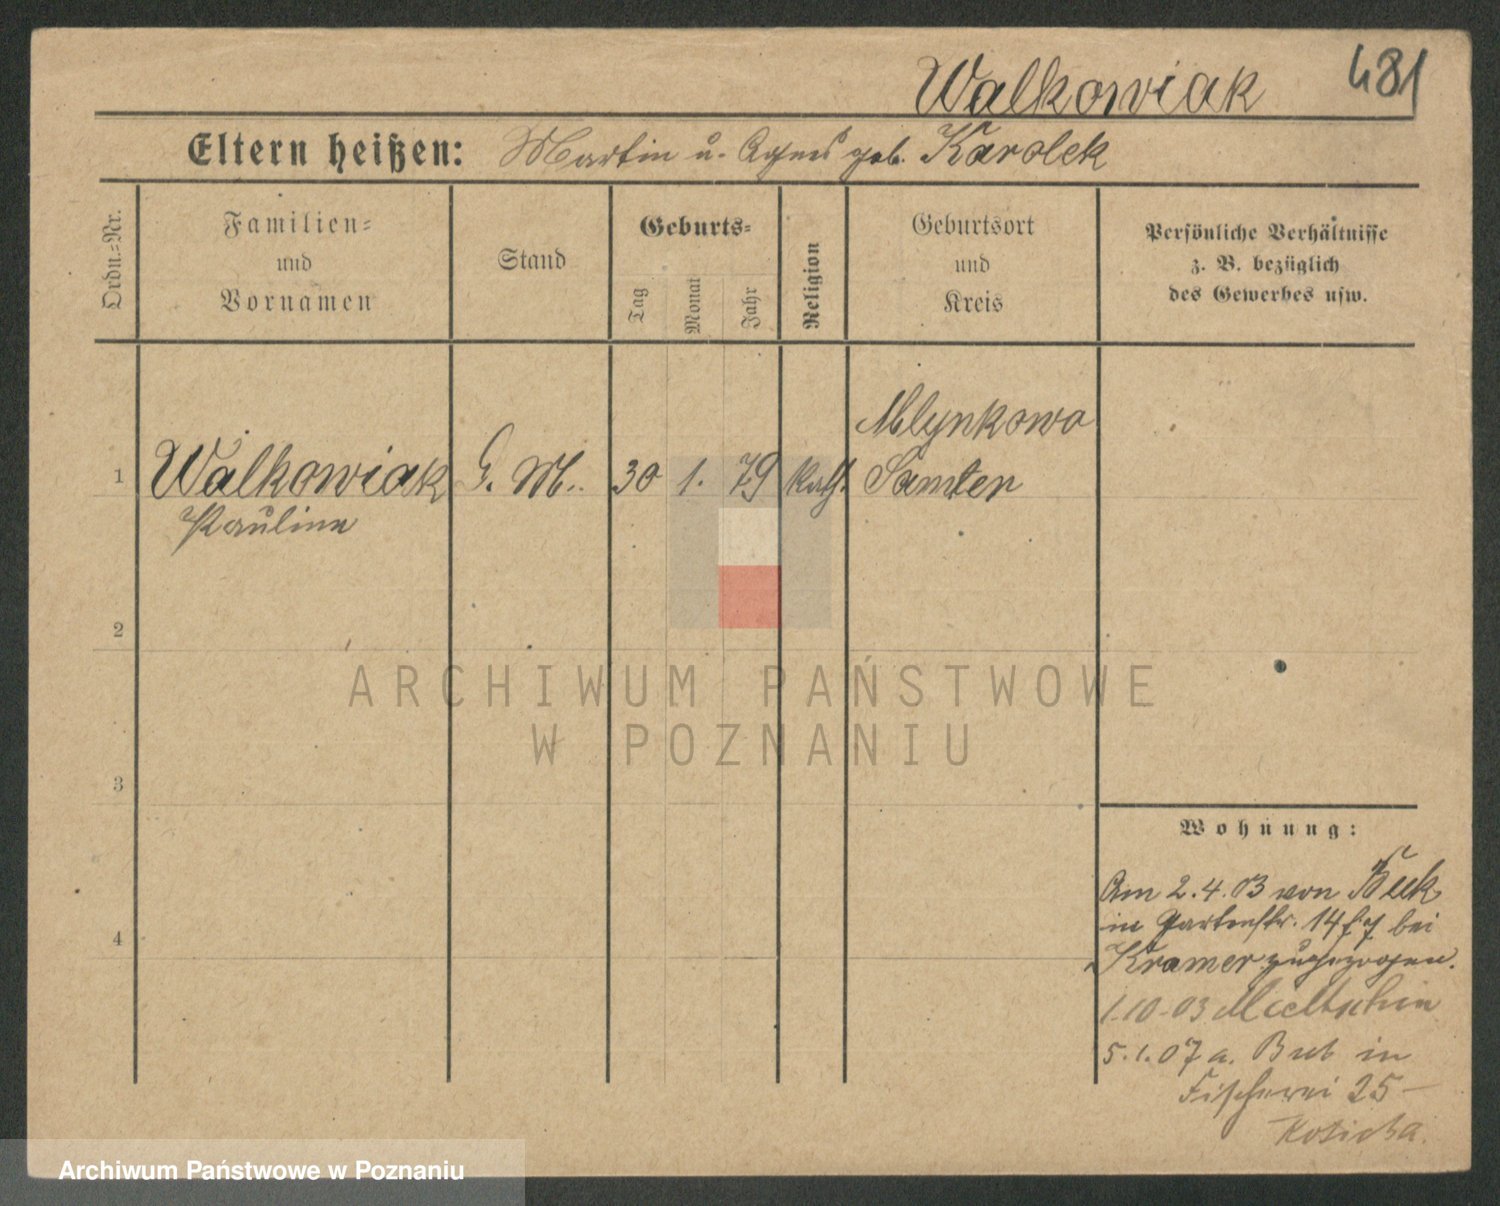 481
Walkowiak
Eltern heißen: Martin u. Agnes geb. Karolek
Ordn.-Nr.
Familien-
und
Vornamen
Stand
Geburts-
Tag
Monat
Jahr
Religion
Geburtsort
und
Kreis
Persönliche Verhältnisse
z. B. bezüglich
des Gewerbes usw.
Mlynkowo
1 Walkowiak G. M. 30 1. 79 kath. Samter
Pauline
2
3
4
Wohnung:
Am 2.4.03 von Buk
in Gartenstr. 14 bei
Kramer zugezogen.
1.10.03
5.1.07 a. in
Fischerei 25
ARCHIWUM PAŃSTWOWE
W POZNANIU
Archiwum Państwowe w Poznaniu